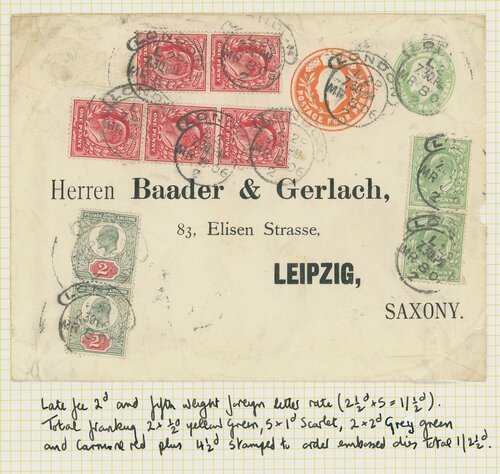 Herren Baader & Gerlach,
83, Elisen Strasse,
LEIPZIG,
SAXONY.
Late fee 2d and fifth weight foreign letter rate (2½d × 5 = 1/½d).
Total franking 2 × ½d yellow green, 5 × 1d Scarlet, 2 × 2d Grey green
and Carmine red plus 4½d stamped to order embossed dies total 1/2½d.